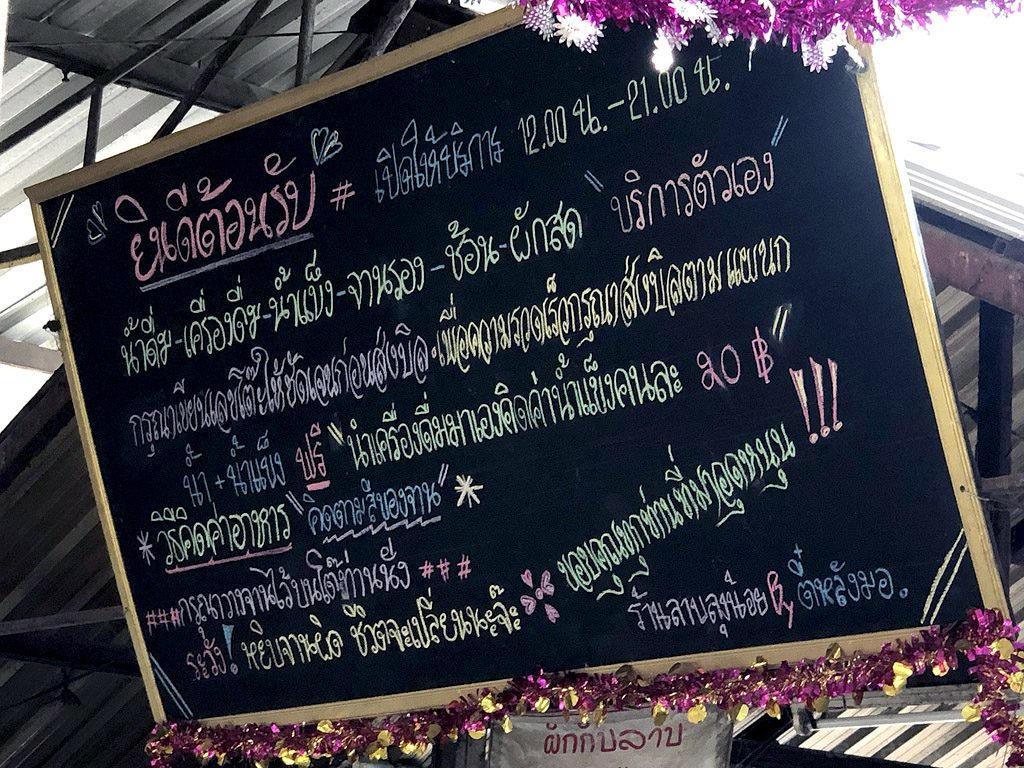 ยินดีต้อนรับ # เปิดให้บริการ 12.00 น.-21.00 น.
น้ำดื่ม-เครื่องดื่ม-น้ำแข็ง-จานรอง-ช้อน-ผักสด "บริการตัวเอง"
กรุณาเขียนเลขโต๊ะให้ชัดเจนก่อนส่งบิล·เพื่อความรวดเร็วกรุณาส่งบิลตามแผนก
น้ำ + น้ำแข็ง ฟรี "นำเครื่องดื่มมาเองคิดค่าน้ำแข็งคนละ ๒๐ ฿"
* วิธีคิดค่าอาหาร "คิดตามสีของจาน" *
###กรุณาวางจานไว้บนโต๊ะท่านนั่ง ###
ระวัง! หยิบจานผิด ชีวิตจะเปลี่ยนนะจ๊ะ
ขอบคุณทุกท่านที่มาอุดหนุน !!!
ร้านลาบลุงน้อย By ติ๋หลังมอ.
ผักกับลาบ